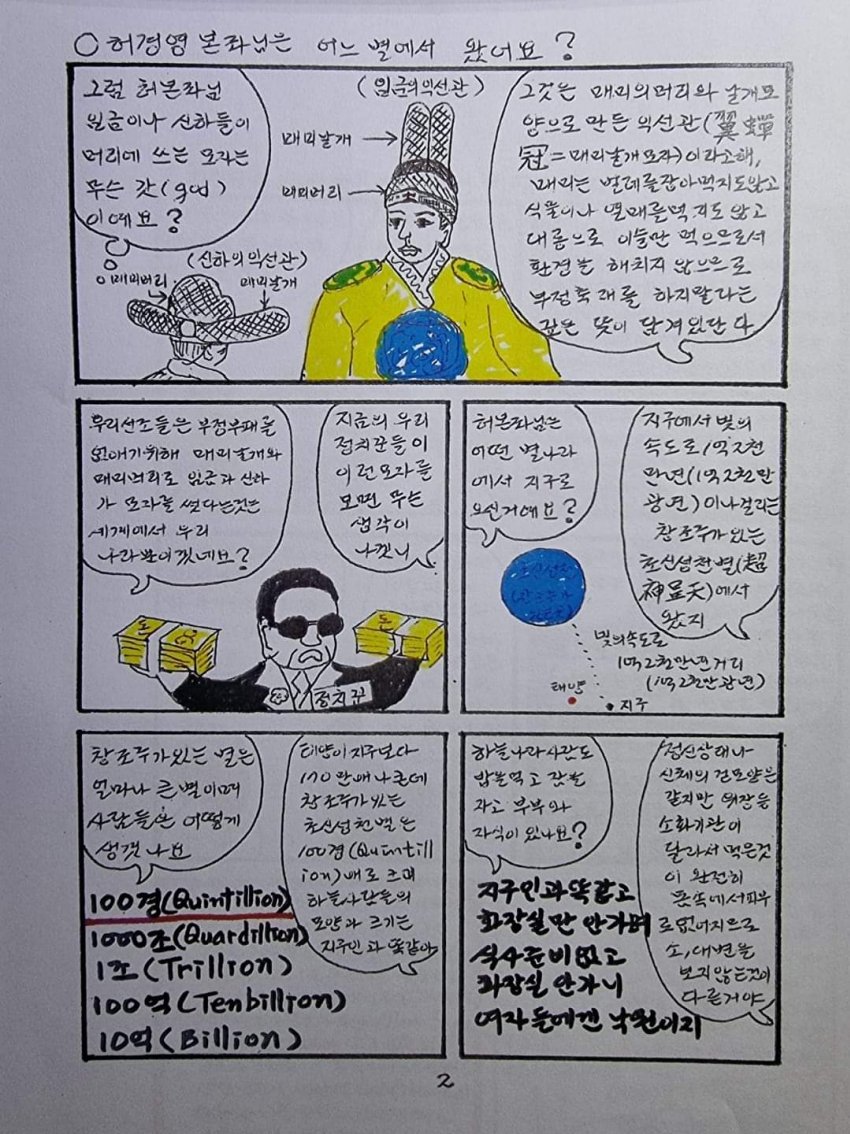 ○ 허경영 본좌님은 어느 별에서 왔어요?
그럼 허본좌님
임금이나 신하들이
머리에 쓰는 모자는
무슨 갓(god)
이예요?
(임금의 익선관)
매미날개
매미머리
(신하의 익선관)
매미머리
매미날개
그것은 매미의 머리와 날개모
양으로 만든 익선관(翼蟬
冠=매미날개모자)이라고해,
매미는 벌레를잡아먹지도않고
식물이나 열매를먹지도 않고
대롱으로 이슬만 먹으므로서
환경을 해치지 않으므로
부정축재를 하지말라는
깊은 뜻이 담겨있단다
우리선조들은 부정부패를
없애기위해 매미날개와
매미머리로 임금과 신하
가 모자를 썼다는것은
세계에서 우리
나라뿐이겠네요?
지금의 우리
정치꾼들이
이런모자를
보면 무슨
생각이
나겠니
돈
돈
정치꾼
허본좌님은
어떤 별나라
에서 지구로
오신거예요?
지구에서 빛의
속도로 1억2천
만년(1억2천만
광년)이나걸리는
창조주가있는
초신성천별(超
神星天)에서
왔지
빛의속도로
1억2천만년거리
(1억2천만광년)
태양
지구
창조주가있는 별은
얼마나 큰별이며
사람들은 어떻게
생겼나요
태양이지구보다
170만배나큰데
창조주가있는
초신성천별은
100경(Quintill
ion)배로크며
하늘사람들의
모양과 크기는
지구인과똑같아
100경(Quintillion)
1000조(Quardillion)
1조(Trillion)
100억(Tenbillion)
10억(Billion)
하늘나라사람도
밥을먹고 잠을
자고 부부와
자식이있나요?
정신상태나
신체의 겉모양은
같지만 위장등
소화기관이
달라서먹은것
이 완전히
몸속에서피부
로없어지므로
소,대변을
보지않는것이
다른거야
지구인과똑같고
화장실만 안가며
식사준비없고
화장실안가니
여자들에겐 낙원이지
2